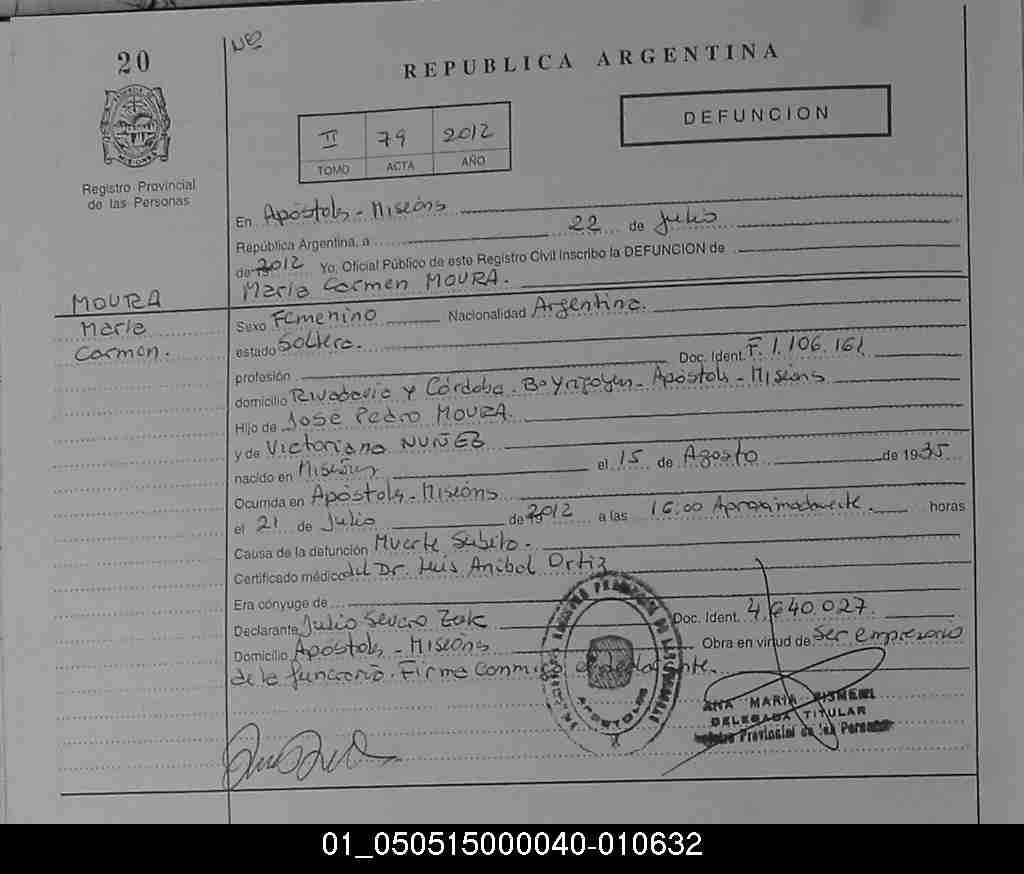 20
Nº
REPUBLICA ARGENTINA
II 79 2012
TOMO ACTA AÑO
DEFUNCION
Registro Provincial
de las Personas
En Apóstols - Misions
República Argentina, a 22 de Julio
de 2012 Yo, Oficial Público de este Registro Civil Inscribo la DEFUNCION de
Maria Carmen MOURA.
MOURA
Maria
Carmen.
Sexo Femenino Nacionalidad Argentina.
estado Soltera.
profesión Doc. Ident. F. 1.106.161
domicilio Rivadavia y Córdoba. Bo Yrigoyen - Apóstols - Misions
Hijo de José Pedro MOURA.
y de Victoriana NUÑEZ
nacido en Misions el 15 de Agosto de 1935
Ocurrida en Apóstols - Misions
el 21 de Julio de 2012 a las 16:00 Aproximadamente. horas
Causa de la defunción Muerte Subita.
Certificado médico del Dr. Luis Anibal Ortiz
Era cónyuge de
Declarante Julio Severo Zak Doc. Ident. 4.640.027.
Domicilio Apóstols - Misions Obra en virtud de Ser empresario
de la funeraria. Firma conmigo el declarante.
APOSTOLES
ANA MARIA
DELEGADA TITULAR
Registro Provincial de las Personas
01_050515000040-010632